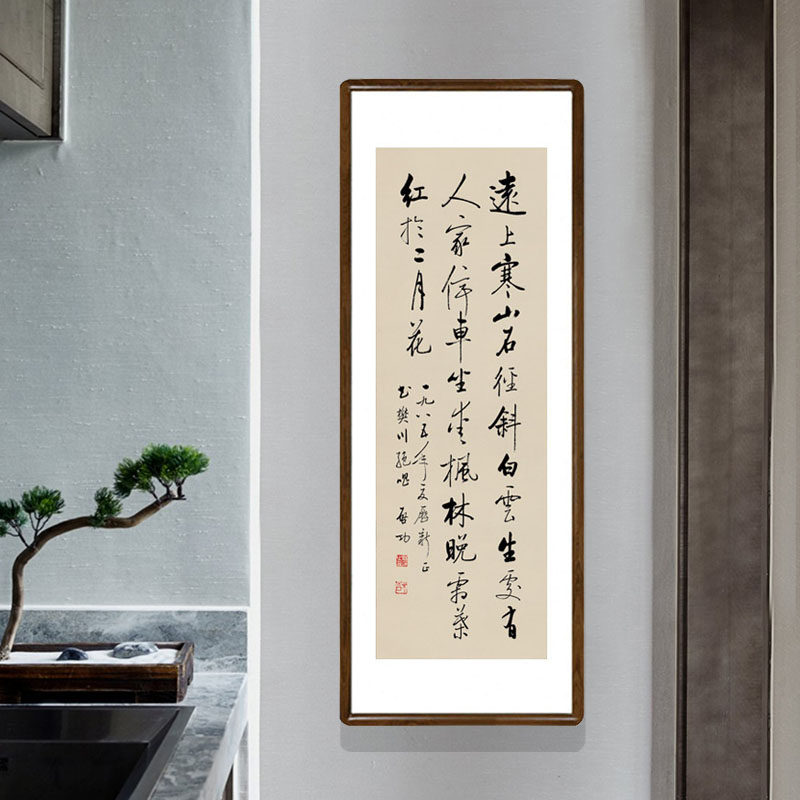 遠上寒山石徑斜白雲生處有
人家停車坐愛楓林晚霜葉
紅於二月花
一九八五年夏曆新正
书樊川絕唱 启功